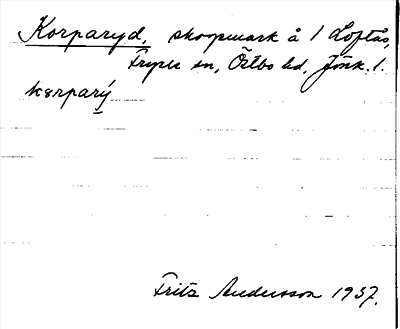 Korparyd, skogsmark å 1 Loftås,
Fryele sn, Östbo hd, Jönk. l.
kɤrparý
Fritz Andersson 1937.